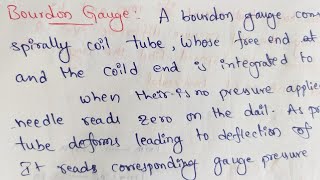 Bourdon Gauge: A bourdon gauge con
spirally coil tube, whose free end at
and the coild end is integrated to
when their is no pressure applie
needle reads zero on the dail. As p
tube deforms leading to deflection of
It reads corresponding gauge pressure